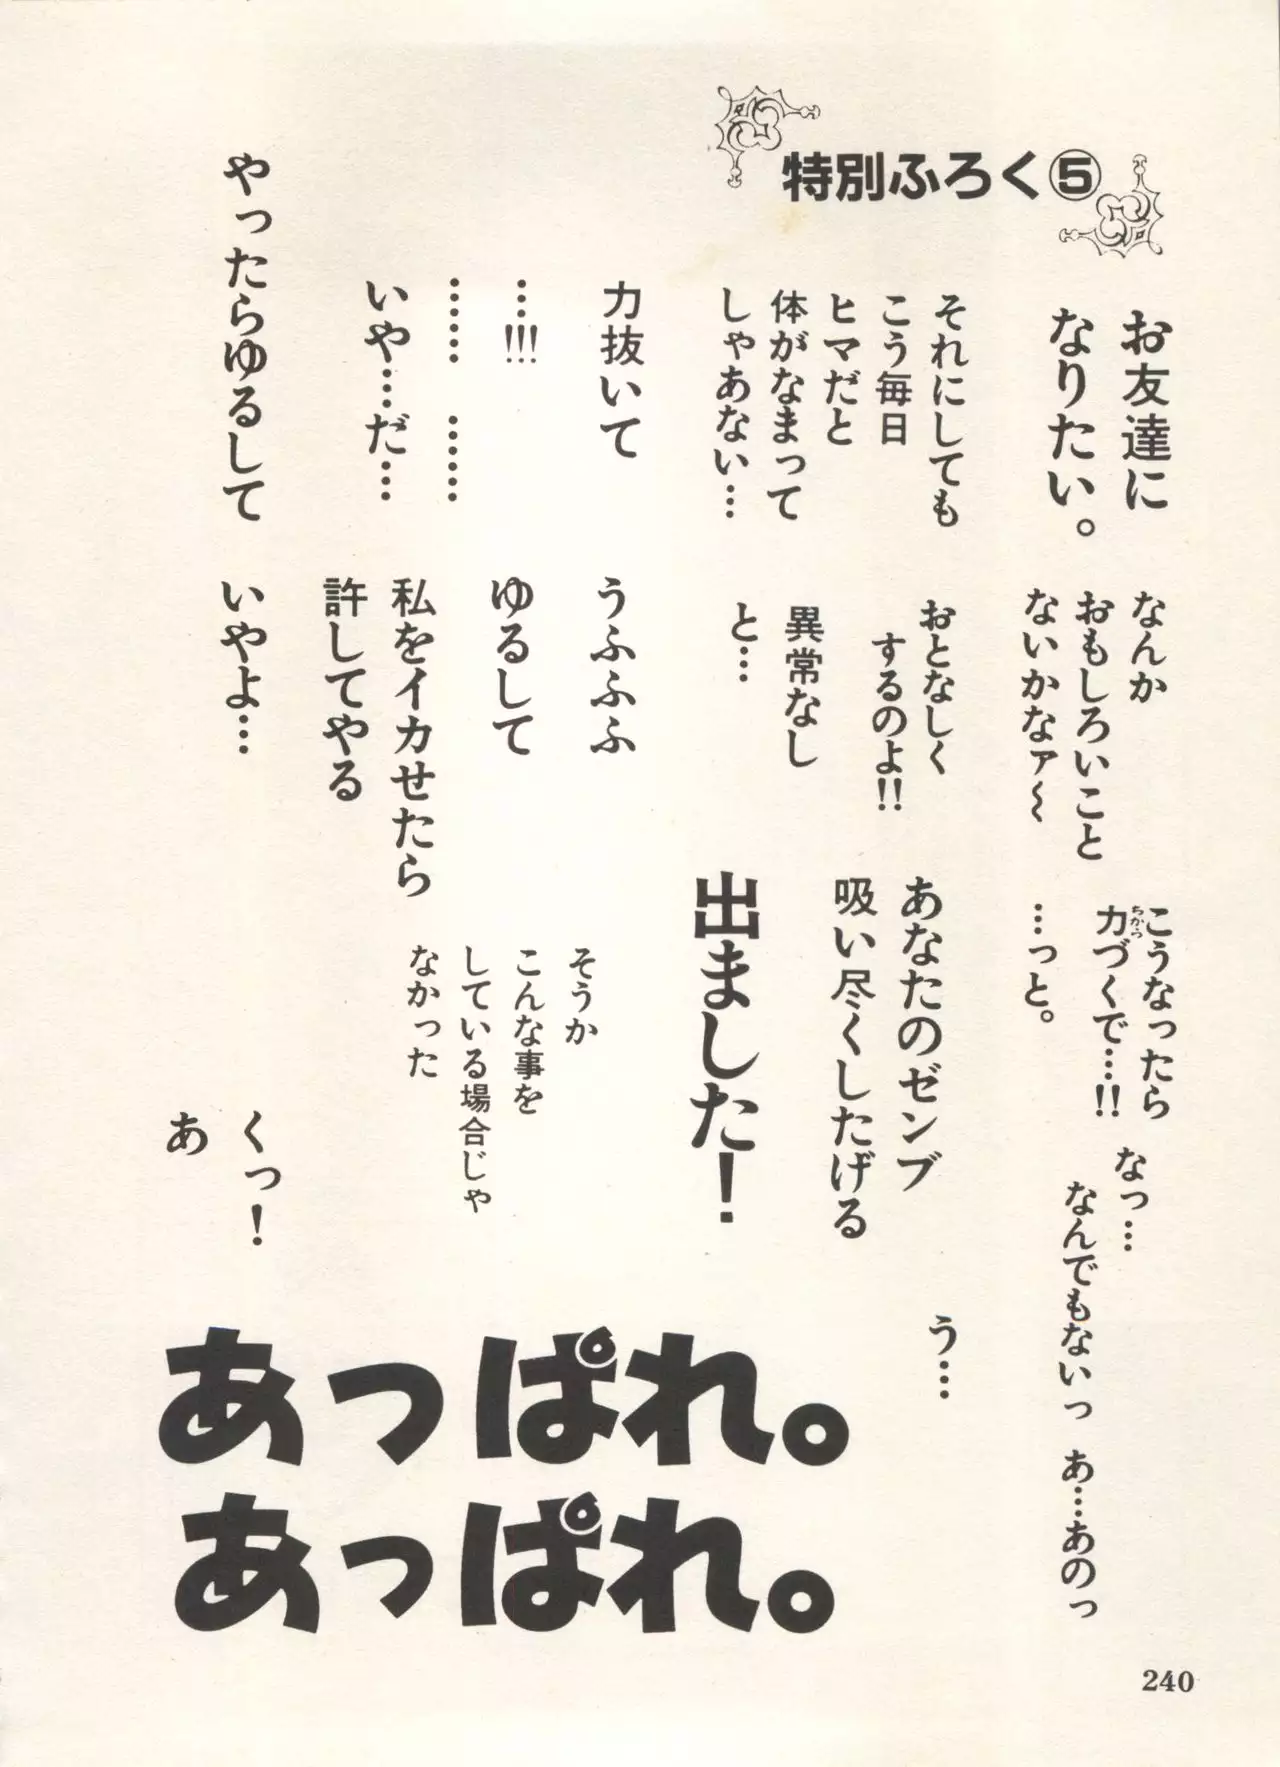 特別ふろく⑤
お友達に
なりたい。
なんか
おもしろいこと
ないかなァ〜
こうなったら
力づくで…!!
…っと。
なっ…
なんでもないっ
あ…あのっ
それにしても
こう毎日
ヒマだと
体がなまって
しゃあない…
おとなしく
するのよ!!
異常なし
と…
あなたのゼンブ
吸い尽くしたげる
出ました!
う…
力抜いて
…!!!
…… ……
いや…だ…
うふふふ
ゆるして
私をイカせたら
許してやる
そうか
こんな事を
している場合じゃ
なかった
やったらゆるして
いやよ…
くっ!
あ
あっぱれ。
あっぱれ。
240